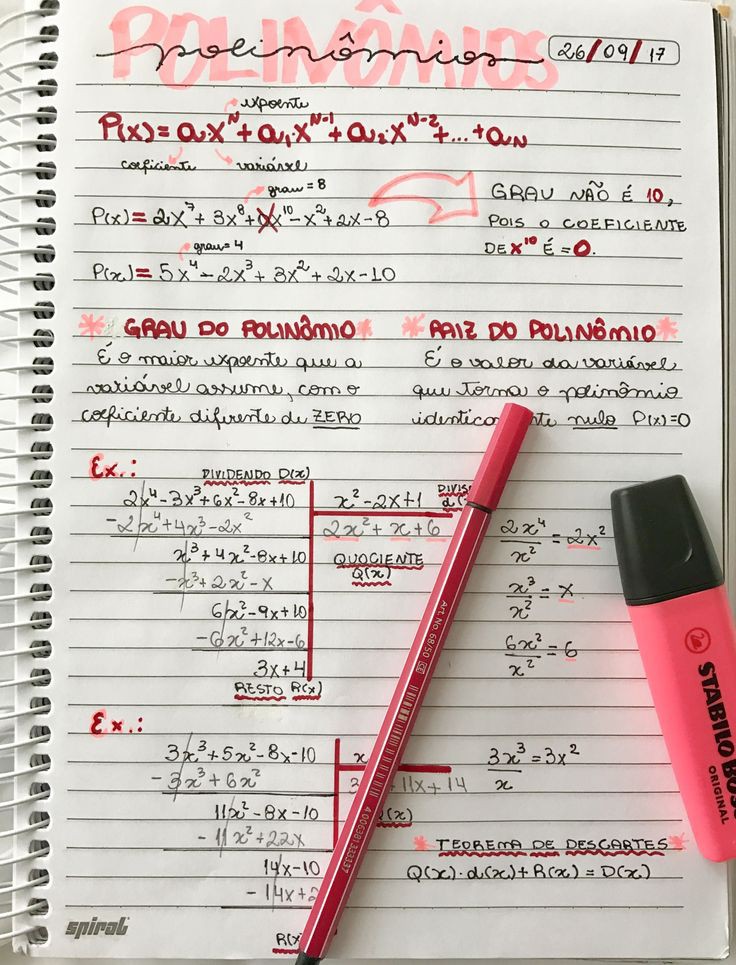 POLINÔMIOS
polinômios
26/09/17
expoente
P(x) = a.x^N + a₁.x^N-1 + a₂.x^N-2 + ... + a_N
coeficiente variável
grau = 8
P(x) = 2x⁷ + 3x⁸ + 0x¹⁰ - x² + 2x - 8
GRAU NÃO É 10,
POIS O COEFICIENTE
DE x¹⁰ É = 0.
grau = 4
P(x) = 5x⁴ - 2x³ + 3x² + 2x - 10
* GRAU DO POLINÔMIO *
É o maior expoente que a
variável assume, com o
coeficiente diferente de ZERO
* RAIZ DO POLINÔMIO *
É o valor da variável
que torna o polinômio
nulo P(x)=0
Ex.:
DIVIDENDO D(x)
2x⁴ - 3x³ + 6x² - 8x + 10
x² - 2x + 1
- 2x⁴ + 4x³ - 2x²
2x² + x + 6
x³ + 4x² - 8x + 10
QUOCIENTE
Q(x)
- x³ + 2x² - x
6x² - 9x + 10
- 6x² + 12x - 6
3x + 4
RESTO R(x)
2x⁴/x² = 2x²
x³/x² = x
6x²/x² = 6
Ex.:
3x³ + 5x² - 8x - 10
x
- 3x³ + 6x²
+ 11x + 14
11x² - 8x - 10
Q(x)
- 11x² + 22x
14x - 10
- 14x + 2
R(x)
3x³/x = 3x²
* TEOREMA DE DESCARTES *
Q(x) · d(x) + R(x) = D(x)
spiral
Art. No 68/50
4 006381 333337
STABILO BOSS
ORIGINAL